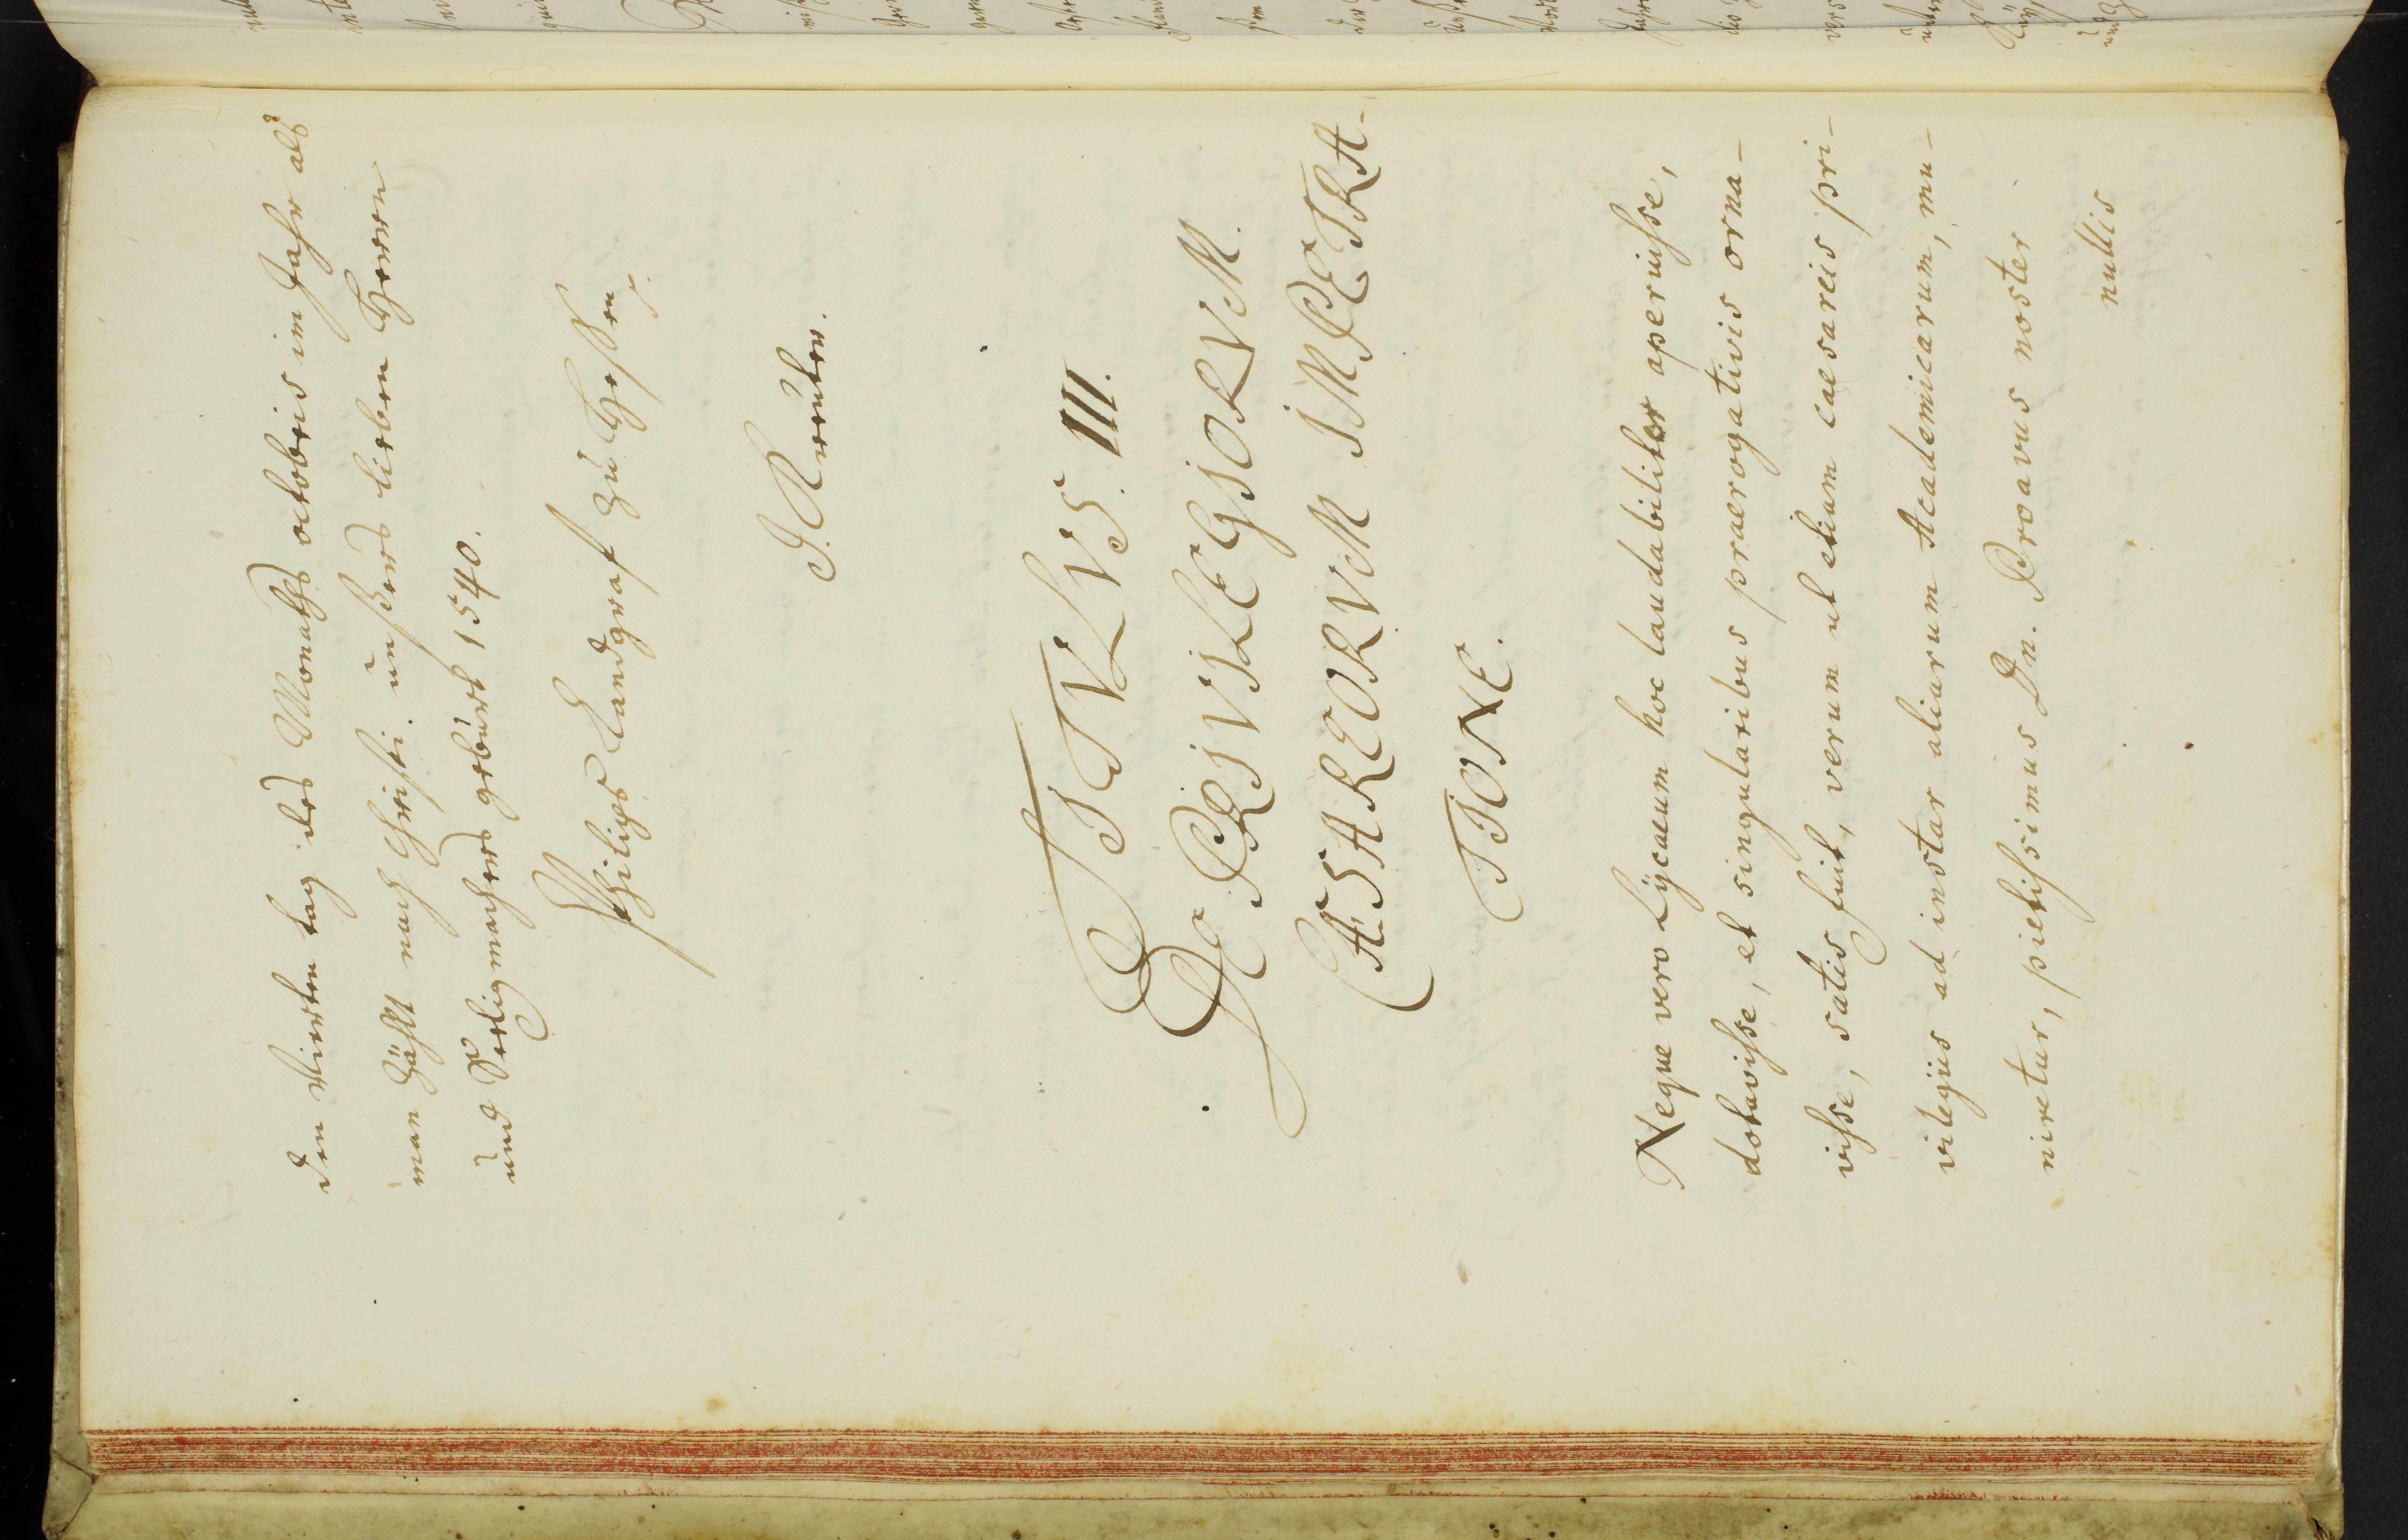 den vierten tag des Monaths octobris im Jahr als
man Zählt nach Christi unßers lieben Herren
und Seeligmachers gebürt 1540.
Philips Landgraf zu Heßen
J. Reuter.
TITVLVS. III.
De PRIVILEGIORVM.
CÆSAREORVM IMPETRA-
TIONE.
Neque vero Lÿcaeum hoc laudabiliter aperuisse,
dotavisse, et singularibus praerogativis orna-
visse, satis fuit, verum ut etiam caesareis pri-
vilegiis ad instar aliarum Academicarum, mu-
niretur, pietissimus Dn. Proavus noster
nullis